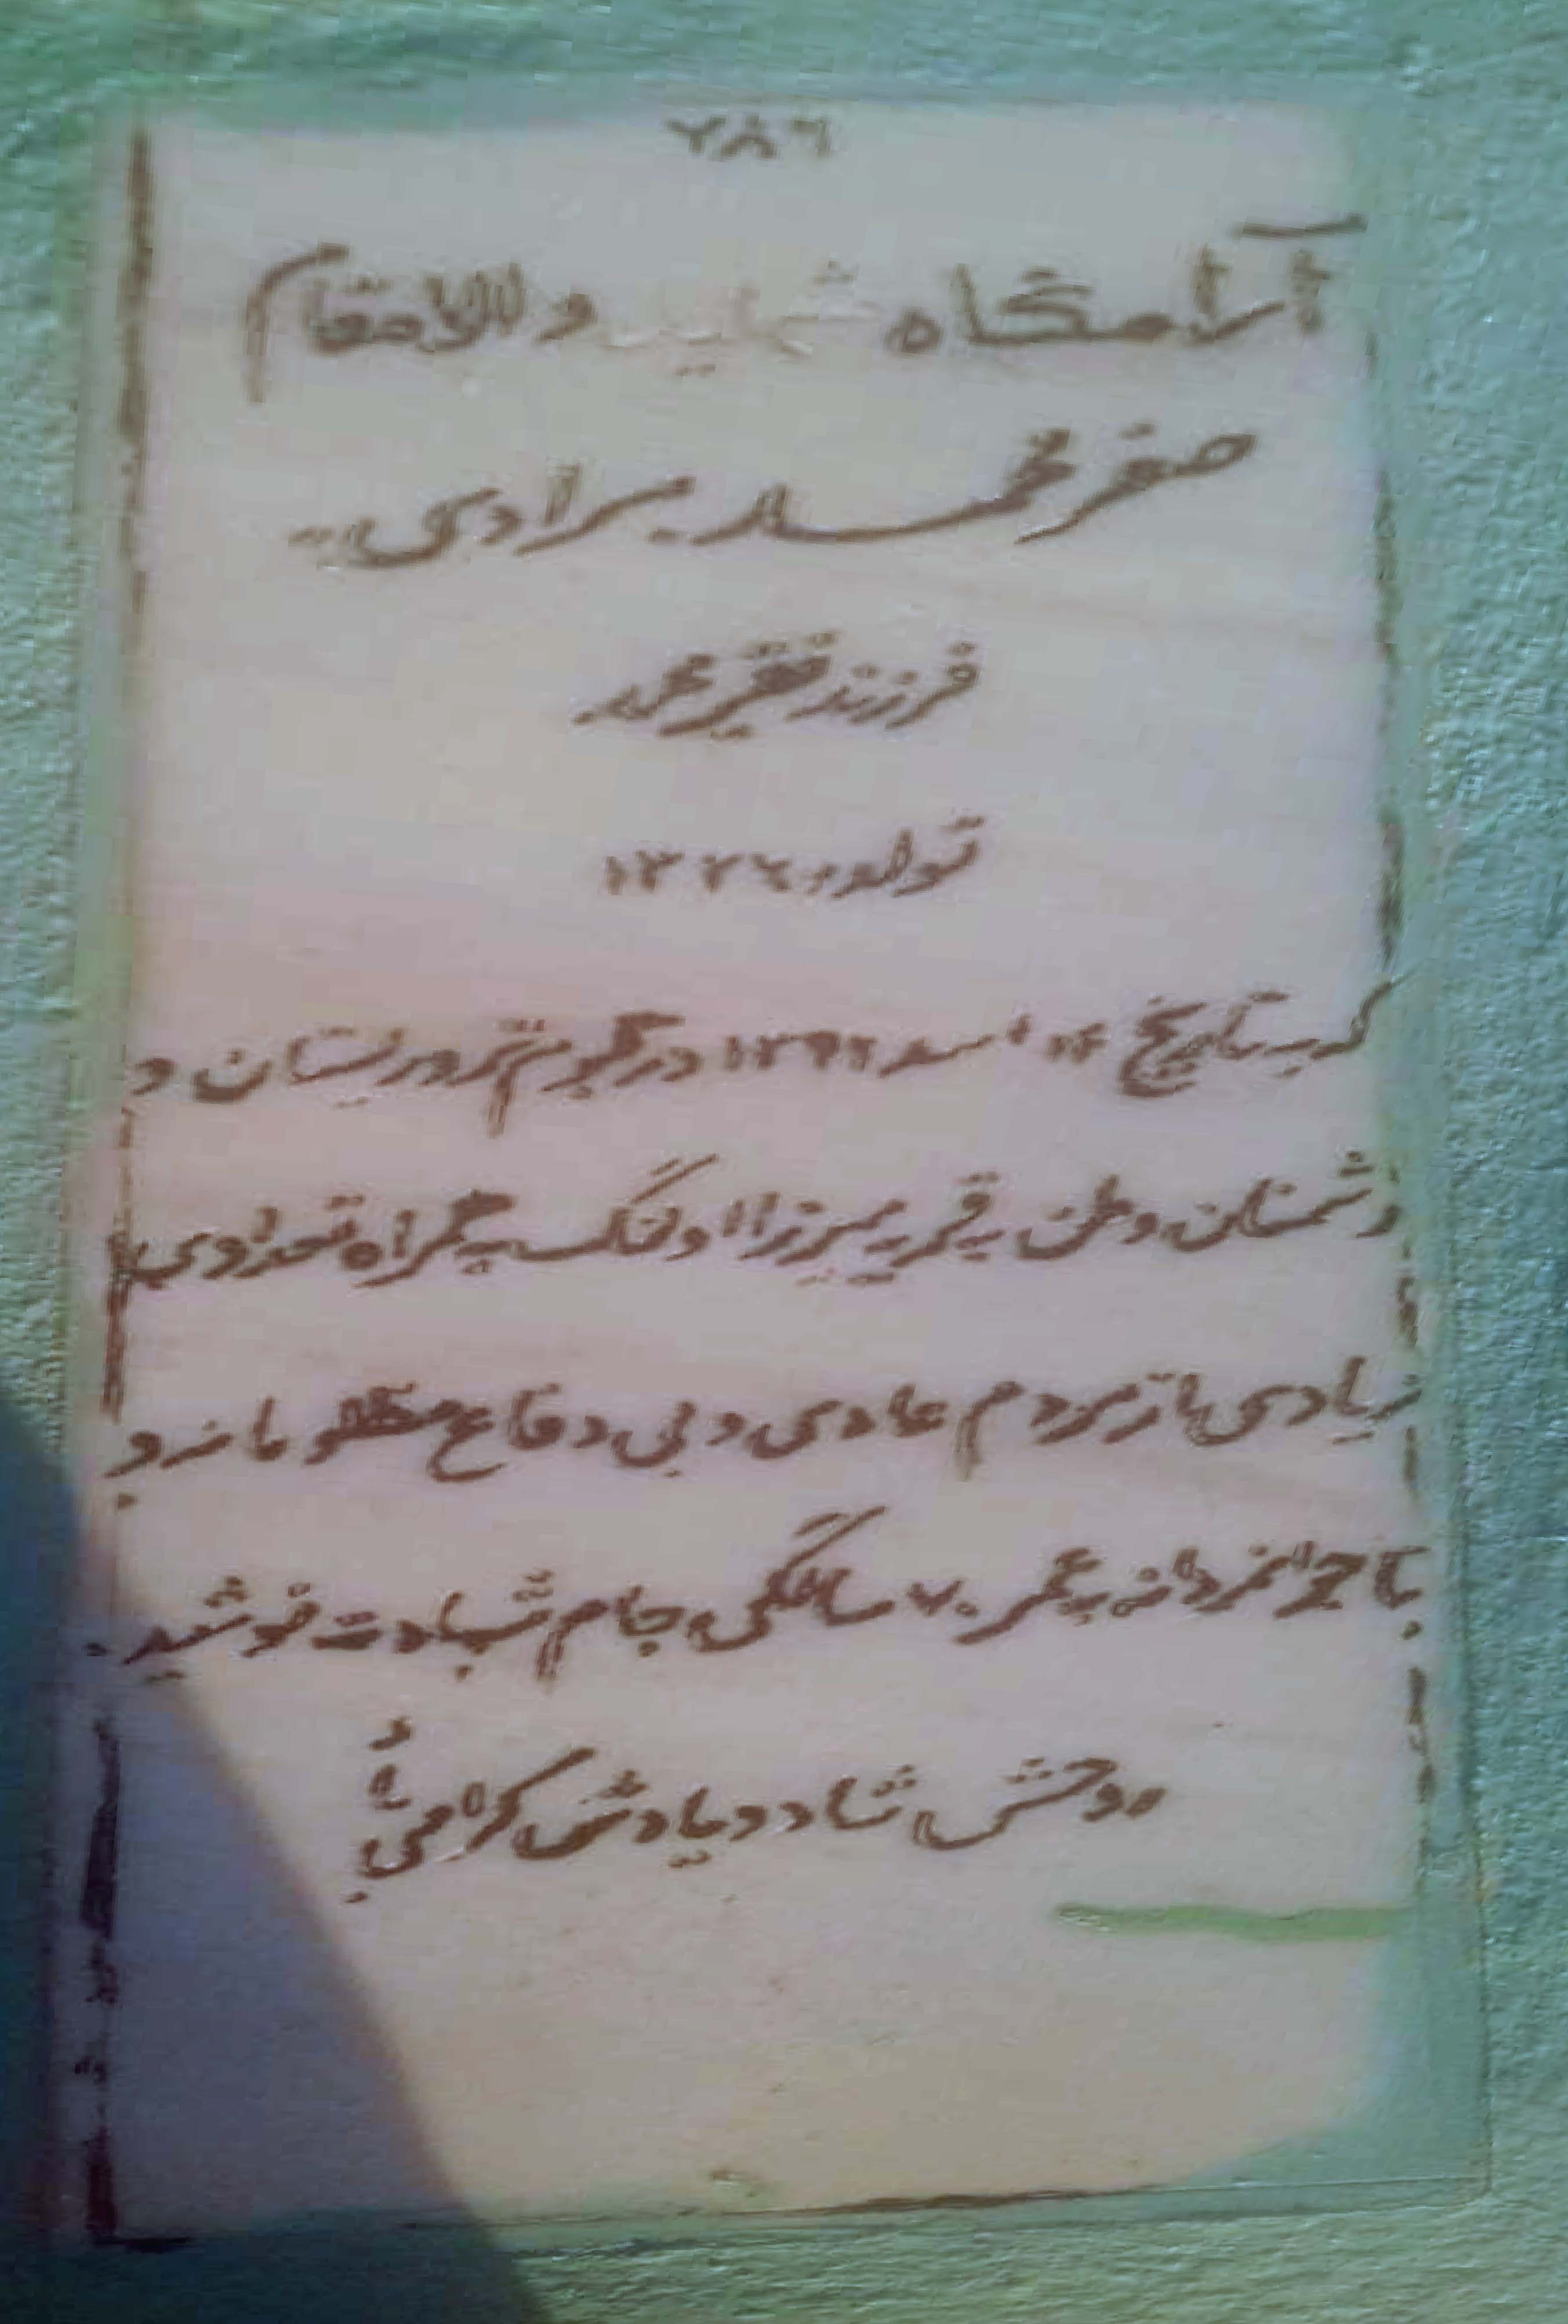 ۷۸۶
آرامگاه شهید والامقام
صفر محمد مرادی
فرزند فقیر محمد
تولد: ۱۳۲۶
که به تاریخ ۱۴ اسد ۱۳۹۶ در هجوم تروریستان و
دشمنان وطن به قریه میرزا اولنگ به همراه تعدادی
زیادی از مردم عادی و بی دفاع مظلومانه و
با جوانمردانه به عمر ۷۰ سالگی جام شهادت نوشید.
روحش شاد و یادش گرامی باد